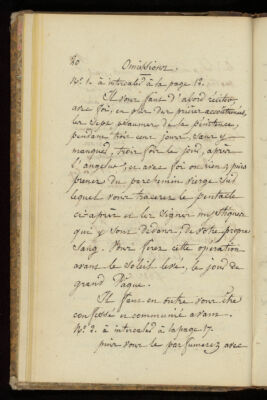 80
Omissions.
N.º 1. à intercaler à la page 12.
Il vous faut d'abord réciter,
avec foi, en plus des prières accoutumées,
les sept psaumes de la pénitence,
pendant trois cent jours, sans y
manquer, trois fois le jour, après
l'angelus; et avec foi on
prenez du parchemin vierge sur
lequel vous tracerez le pentacle
ci-après et les signes mystiques
qui y sont dedans, de votre propre
sang. Vous ferez cette opération
avant le soleil levé, le jour de
grand Pâque.
Il faut en outre vous être
confessé et communié avant.
N.º 2. à intercaler à la page 17.
puis vous le parfumerez avec